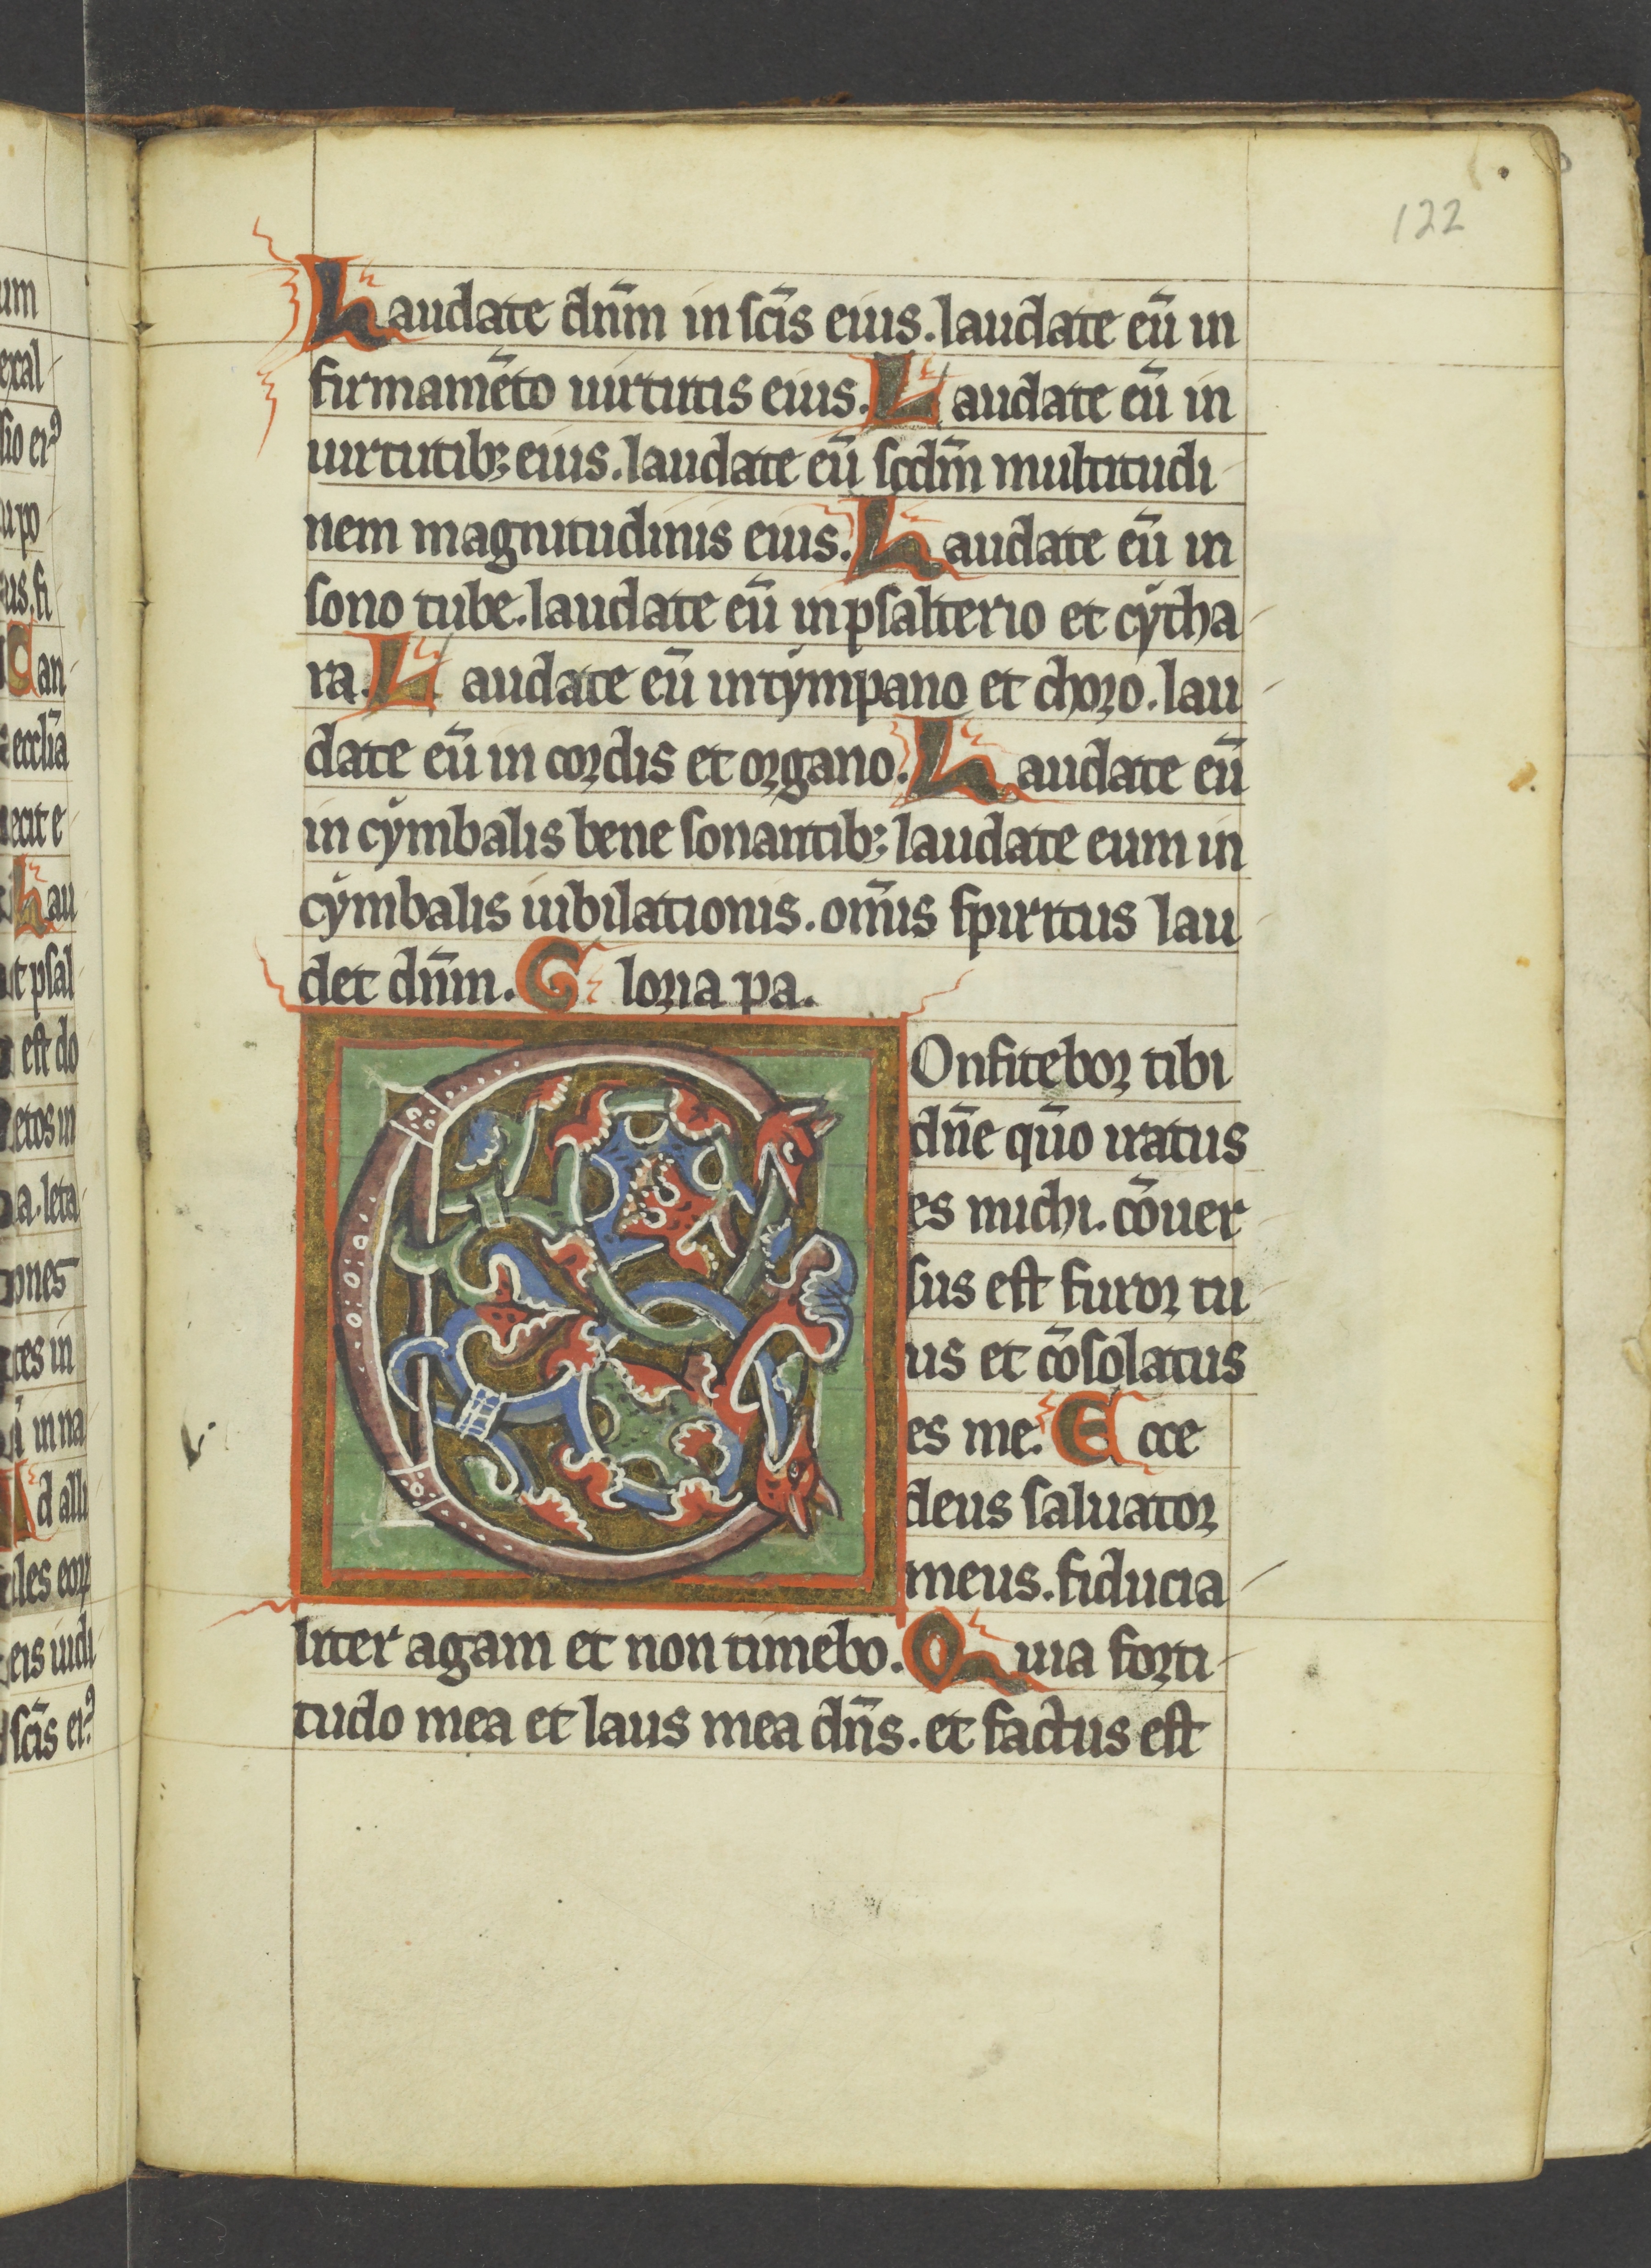 122
Laudate dñm in scĩs eius. laudate eũ in
firmamẽto uirtutis eius. Laudate eũ in
uirtutib; eius. laudate eũ scdm̃ multitudi
nem magnitudinis eius. Laudate eũ in
sono tube. laudate eũ in psalterio et cẏtha
ra. Laudate eũ in tẏmpano et choro. lau
date eũ in cordis et organo. Laudate eũ
in cẏmbalis bene sonantib; laudate eum in
cẏmbalis iubilationis. om̃is spiritus lau
det dñm. Gloria pa.
COnfitebor tibi
dñe qũo iratus
es michi. cõuer
sus est furor tu
us et cõsolatus
es me. Ecce
deus saluator
meus. fiducia
liter agam et non timebo. Quia forti
tudo mea et laus mea dñs. et factus est
um
exal
sio ei⁹
upo
us. fi
Can
ecclĩa
ecit e
Lau
t psal
est do
etos in
a. leta
ones
ces in
in na
Ad alli
iles eoꝝ
eis iudi
scĩs ei⁹